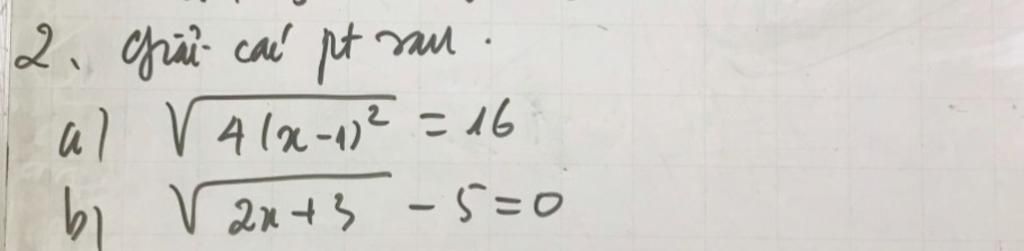 2. Giải các pt sau.
a) √4(x-1)² = 16
b) √2x+3 - 5=0